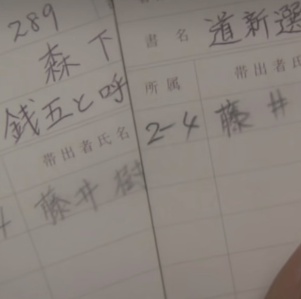 289
森下
銭五と呼
帯出者氏名
藤井樹
書名 道新選
所属 帯出者氏
2-4 藤井